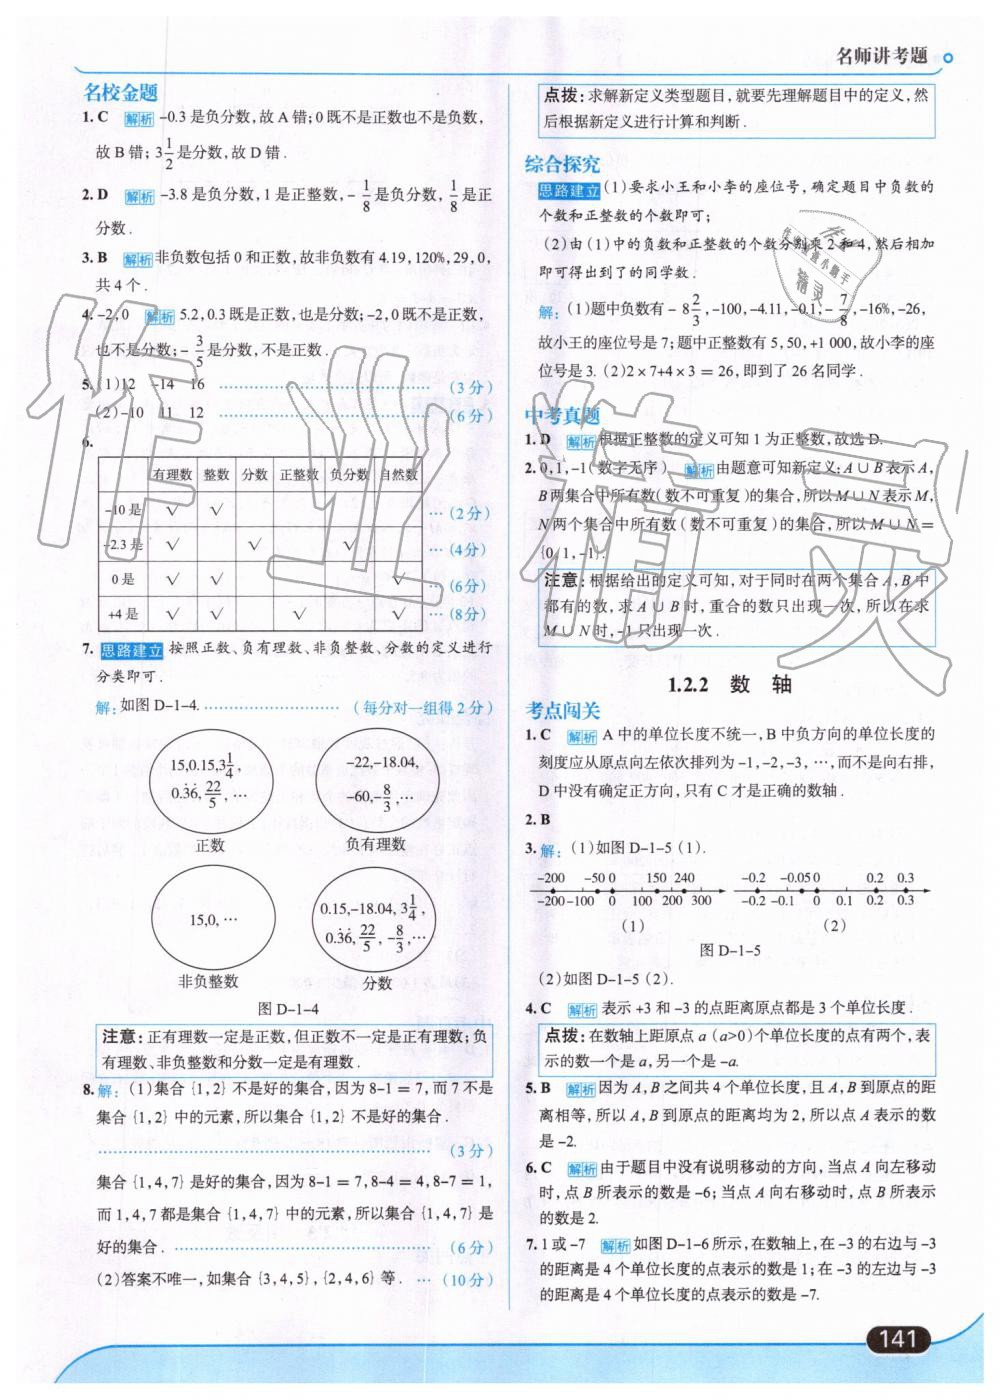 名师讲考题
名校金题
1. C 解析 -0.3 是负分数,故 A 错;0 既不是正数也不是负数,
故 B 错;3 1/2 是分数,故 D 错.
2. D 解析 -3.8 是负分数,1 是正整数,-1/8 是负分数,1/8 是正
分数.
3. B 解析 非负数包括 0 和正数,故非负数有 4.19,120%,29,0,
共 4 个.
4. -2,0 解析 5.2,0.3 既是正数,也是分数;-2,0 既不是正数,
也不是分数;-3/5 是分数,不是正数.
5. (1)12 -14 16 (3 分)
(2)-10 11 12 (6 分)
6.
有理数 整数 分数 正整数 负分数 自然数
-10 是 √ √ … (2 分)
-2.3 是 √ √ √ … (4 分)
0 是 √ √ √ … (6 分)
+4 是 √ √ √ √ … (8 分)
7. 思路建立 按照正数、负有理数、非负整数、分数的定义进行
分类即可.
解:如图 D-1-4. (每分对一组得 2 分)
15,0.15,3 1/4,
0.3̇6̇, 22/5, …
正数
-22,-18.04,
-60,-8/3, …
负有理数
15,0, …
非负整数
0.15,-18.04, 3 1/4,
0.3̇6̇, 22/5, -8/3, …
分数
图 D-1-4
注意:正有理数一定是正数,但正数不一定是正有理数;负
有理数、非负整数和分数一定是有理数.
8. 解:(1)集合 {1,2} 不是好的集合,因为 8-1 = 7,而 7 不是
集合 {1,2} 中的元素,所以集合 {1,2} 不是好的集合.
(3 分)
集合 {1,4,7} 是好的集合,因为 8-1 = 7,8-4 = 4,8-7 = 1,
而 1,4,7 都是集合 {1,4,7} 中的元素,所以集合 {1,4,7} 是
好的集合. (6 分)
(2)答案不唯一,如集合 {3,4,5},{2,4,6} 等. … (10 分)
点拨:求解新定义类型题目,就要先理解题目中的定义,然
后根据新定义进行计算和判断.
综合探究
思路建立 (1)要求小王和小李的座位号,确定题目中负数的
个数和正整数的个数即可;
(2)由(1)中的负数和正整数的个数分别乘 2 和 4,然后相加
即可得出到了的同学数.
解:(1)题中负数有 -8 2/3,-100,-4.11,-0.1,-7/8,-16%,-26,
故小王的座位号是 7;题中正整数有 5,50,+1 000,故小李的座
位号是 3. (2)2×7+4×3 = 26,即到了 26 名同学.
中考真题
1. D 解析 根据正整数的定义可知 1 为正整数,故选 D.
2. 0,1,-1(数字无序) 解析 由题意可知新定义:A∪B 表示 A,
B 两集合中所有数(数不可重复)的集合,所以 M∪N 表示 M,
N 两个集合中所有数(数不可重复)的集合,所以 M∪N =
{0,1,-1}.
注意:根据给出的定义可知,对于同时在两个集合 A,B 中
都有的数,求 A∪B 时,重合的数只出现一次,所以在求
M∪N 时,-1 只出现一次.
1.2.2 数 轴
考点闯关
1. C 解析 A 中的单位长度不统一,B 中负方向的单位长度的
刻度应从原点向左依次排列为 -1,-2,-3, …,而不是向右排,
D 中没有确定正方向,只有 C 才是正确的数轴.
2. B
3. 解:(1)如图 D-1-5 (1).
-200 -50 0 150 240
-200 -100 0 100 200 300
(1)
-0.2 -0.05 0 0.2 0.3
-0.2 -0.1 0 0.1 0.2 0.3
(2)
图 D-1-5
(2)如图 D-1-5 (2).
4. C 解析 表示 +3 和 -3 的点距离原点都是 3 个单位长度.
点拨:在数轴上距原点 a (a>0)个单位长度的点有两个,表
示的数一个是 a,另一个是 -a.
5. B 解析 因为 A,B 之间共 4 个单位长度,且 A,B 到原点的距
离相等,所以 A,B 到原点的距离均为 2,所以点 A 表示的数
是 -2.
6. C 解析 由于题目中没有说明移动的方向,当点 A 向左移动
时,点 B 所表示的数是 -6;当点 A 向右移动时,点 B 所表示
的数是 2.
7. 1 或 -7 解析 如图 D-1-6 所示,在数轴上,在 -3 的右边与 -3
的距离是 4 个单位长度的点表示的数是 1;在 -3 的左边与 -3
的距离是 4 个单位长度的点表示的数是 -7.
141
作业精灵